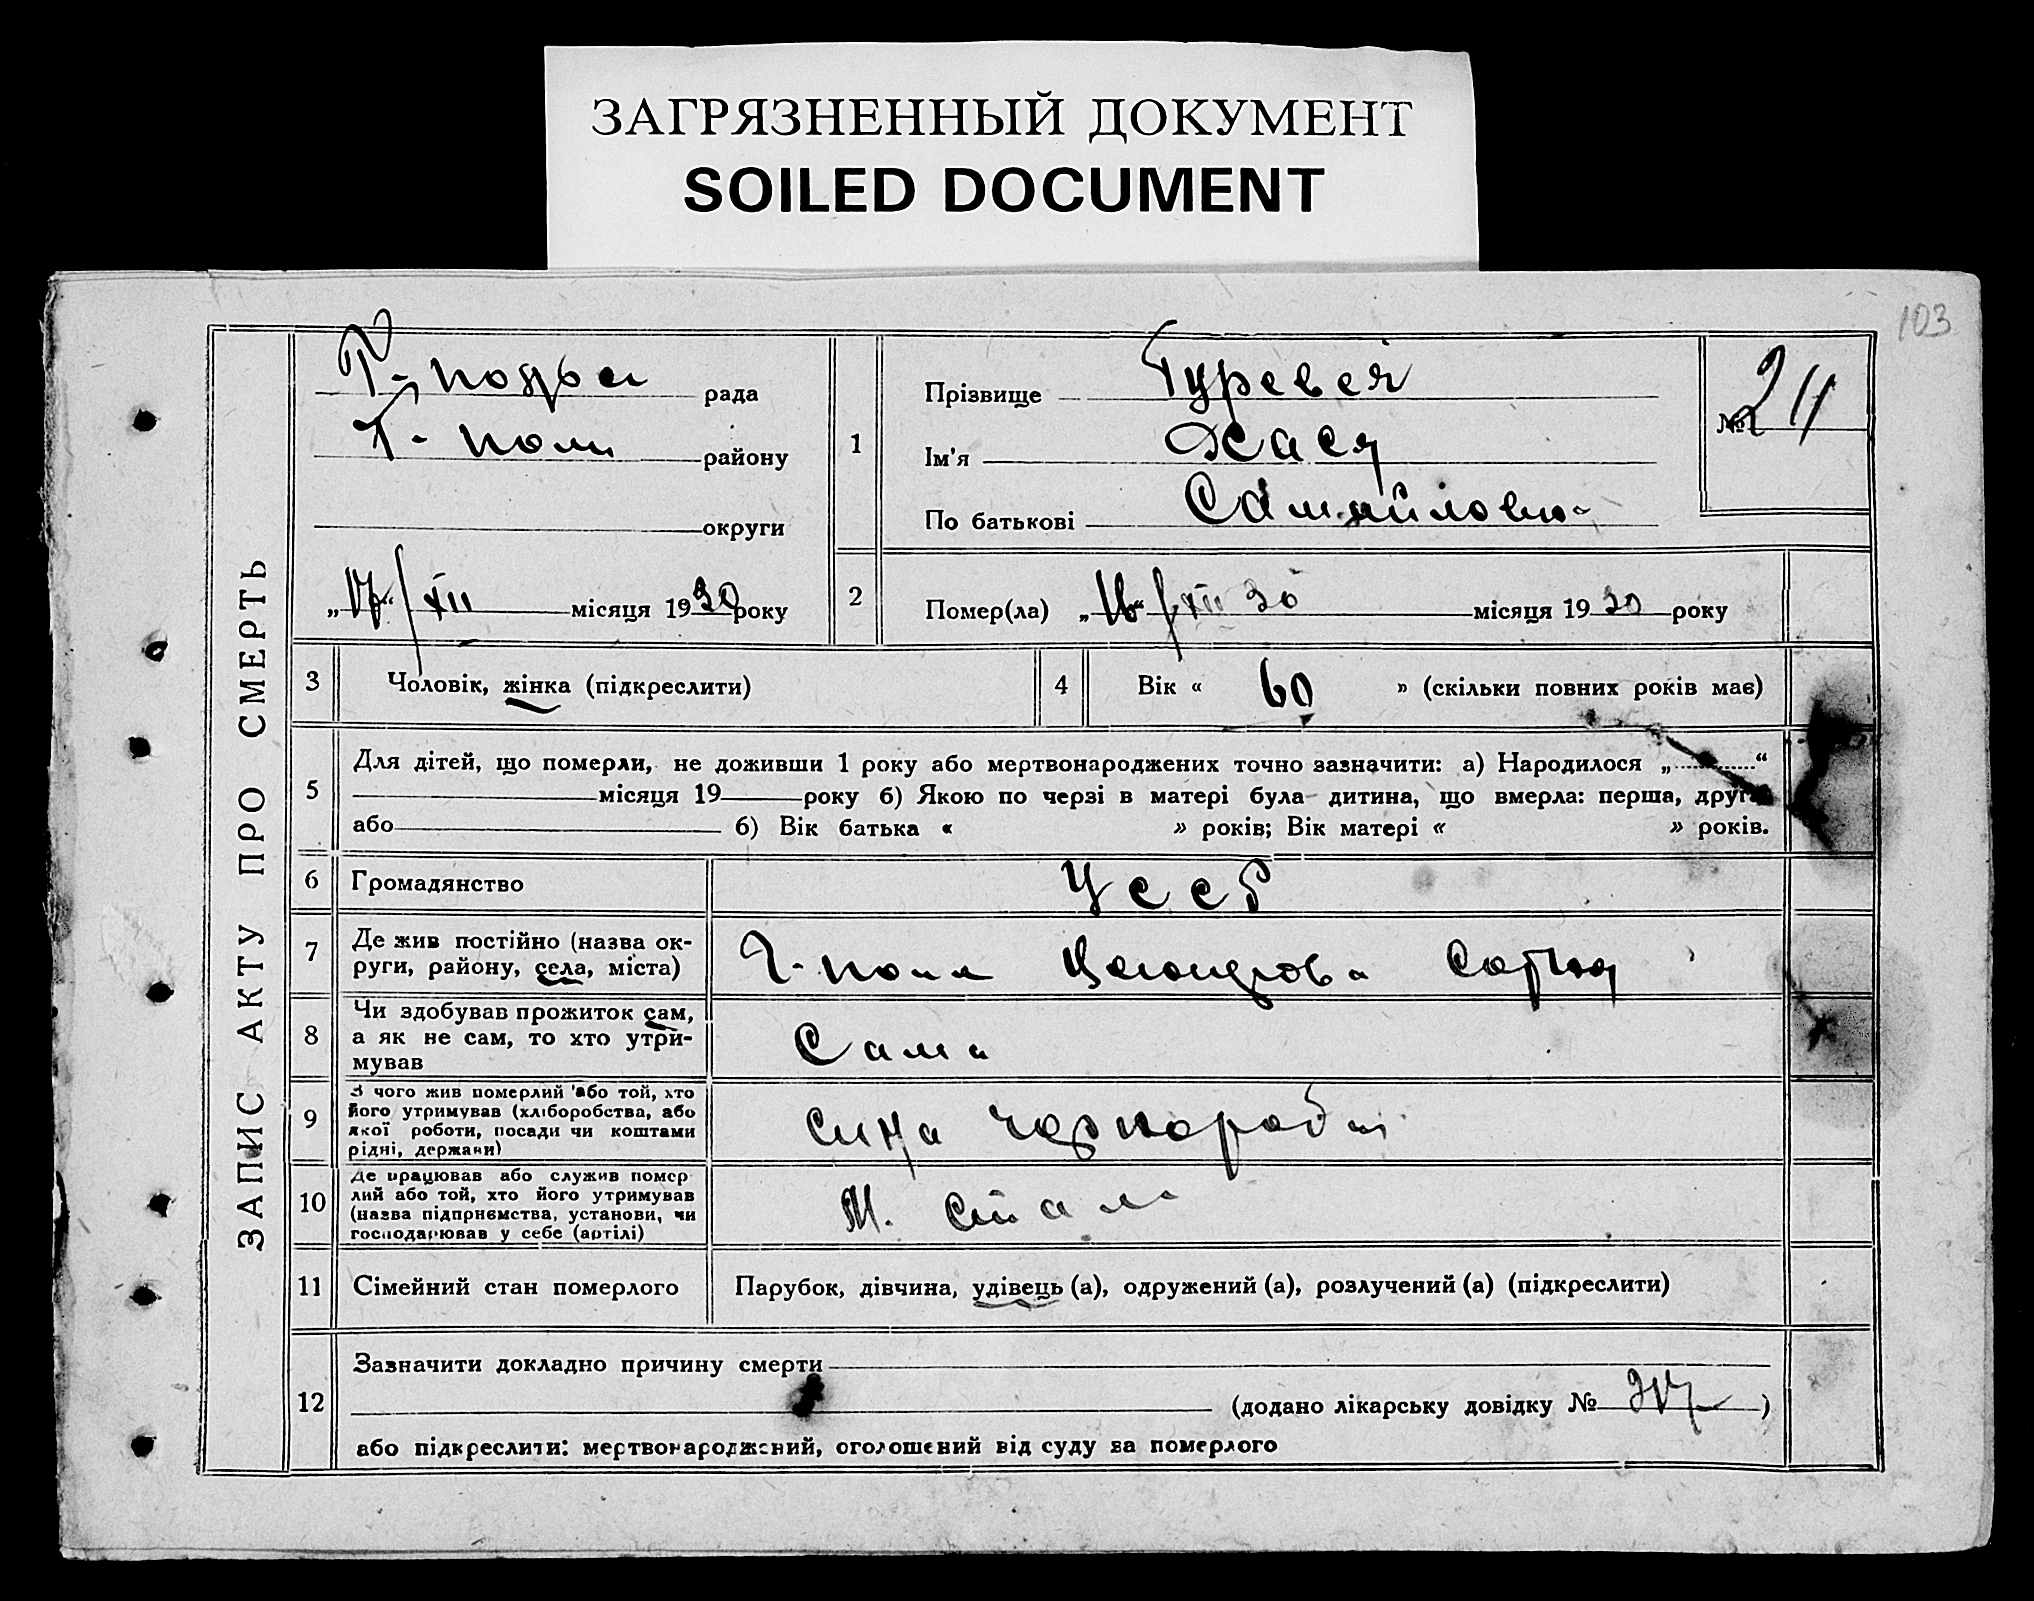 ЗАГРЯЗНЕННЫЙ ДОКУМЕНТ
SOILED DOCUMENT
103
ЗАПИС АКТУ ПРО СМЕРТЬ
рада
району
округи
„ “ / XII місяця 1930 року
1
Прізвище
Ім'я Хася
По батькові
№ 211
2
Помер(ла) „16“ / XII 30 місяця 1930 року
3
Чоловік, жінка (підкреслити)
4
Вік « 60 » (скільки повних років має)
5
Для дітей, що померли, не доживши 1 року або мертвонароджених точно зазначити: а) Народилося „ “
місяця 19 року б) Якою по черзі в матері була дитина, що вмерла: перша, друга
або б) Вік батька « » років; Вік матері « » років.
6
Громадянство
УССР
7
Де жив постійно (назва ок-
руги, району, села, міста)
8
Чи здобував прожиток сам,
а як не сам, то хто утри-
мував
Сама
9
З чого жив померлий або той, хто
його утримував (хліборобства, або
якої роботи, посади чи коштами
рідні, держави)
10
Де працював або служив помер
лий або той, хто його утримував
(назва підприємства, установи, чи
господарював у себе (артілі)
11
Сімейний стан померлого
Парубок, дівчина, удівець (а), одружений (а), розлучений (а) (підкреслити)
12
Зазначити докладно причину смерти
(додано лікарську довідку № )
або підкреслити: мертвонароджений, оголошений від суду за померлого